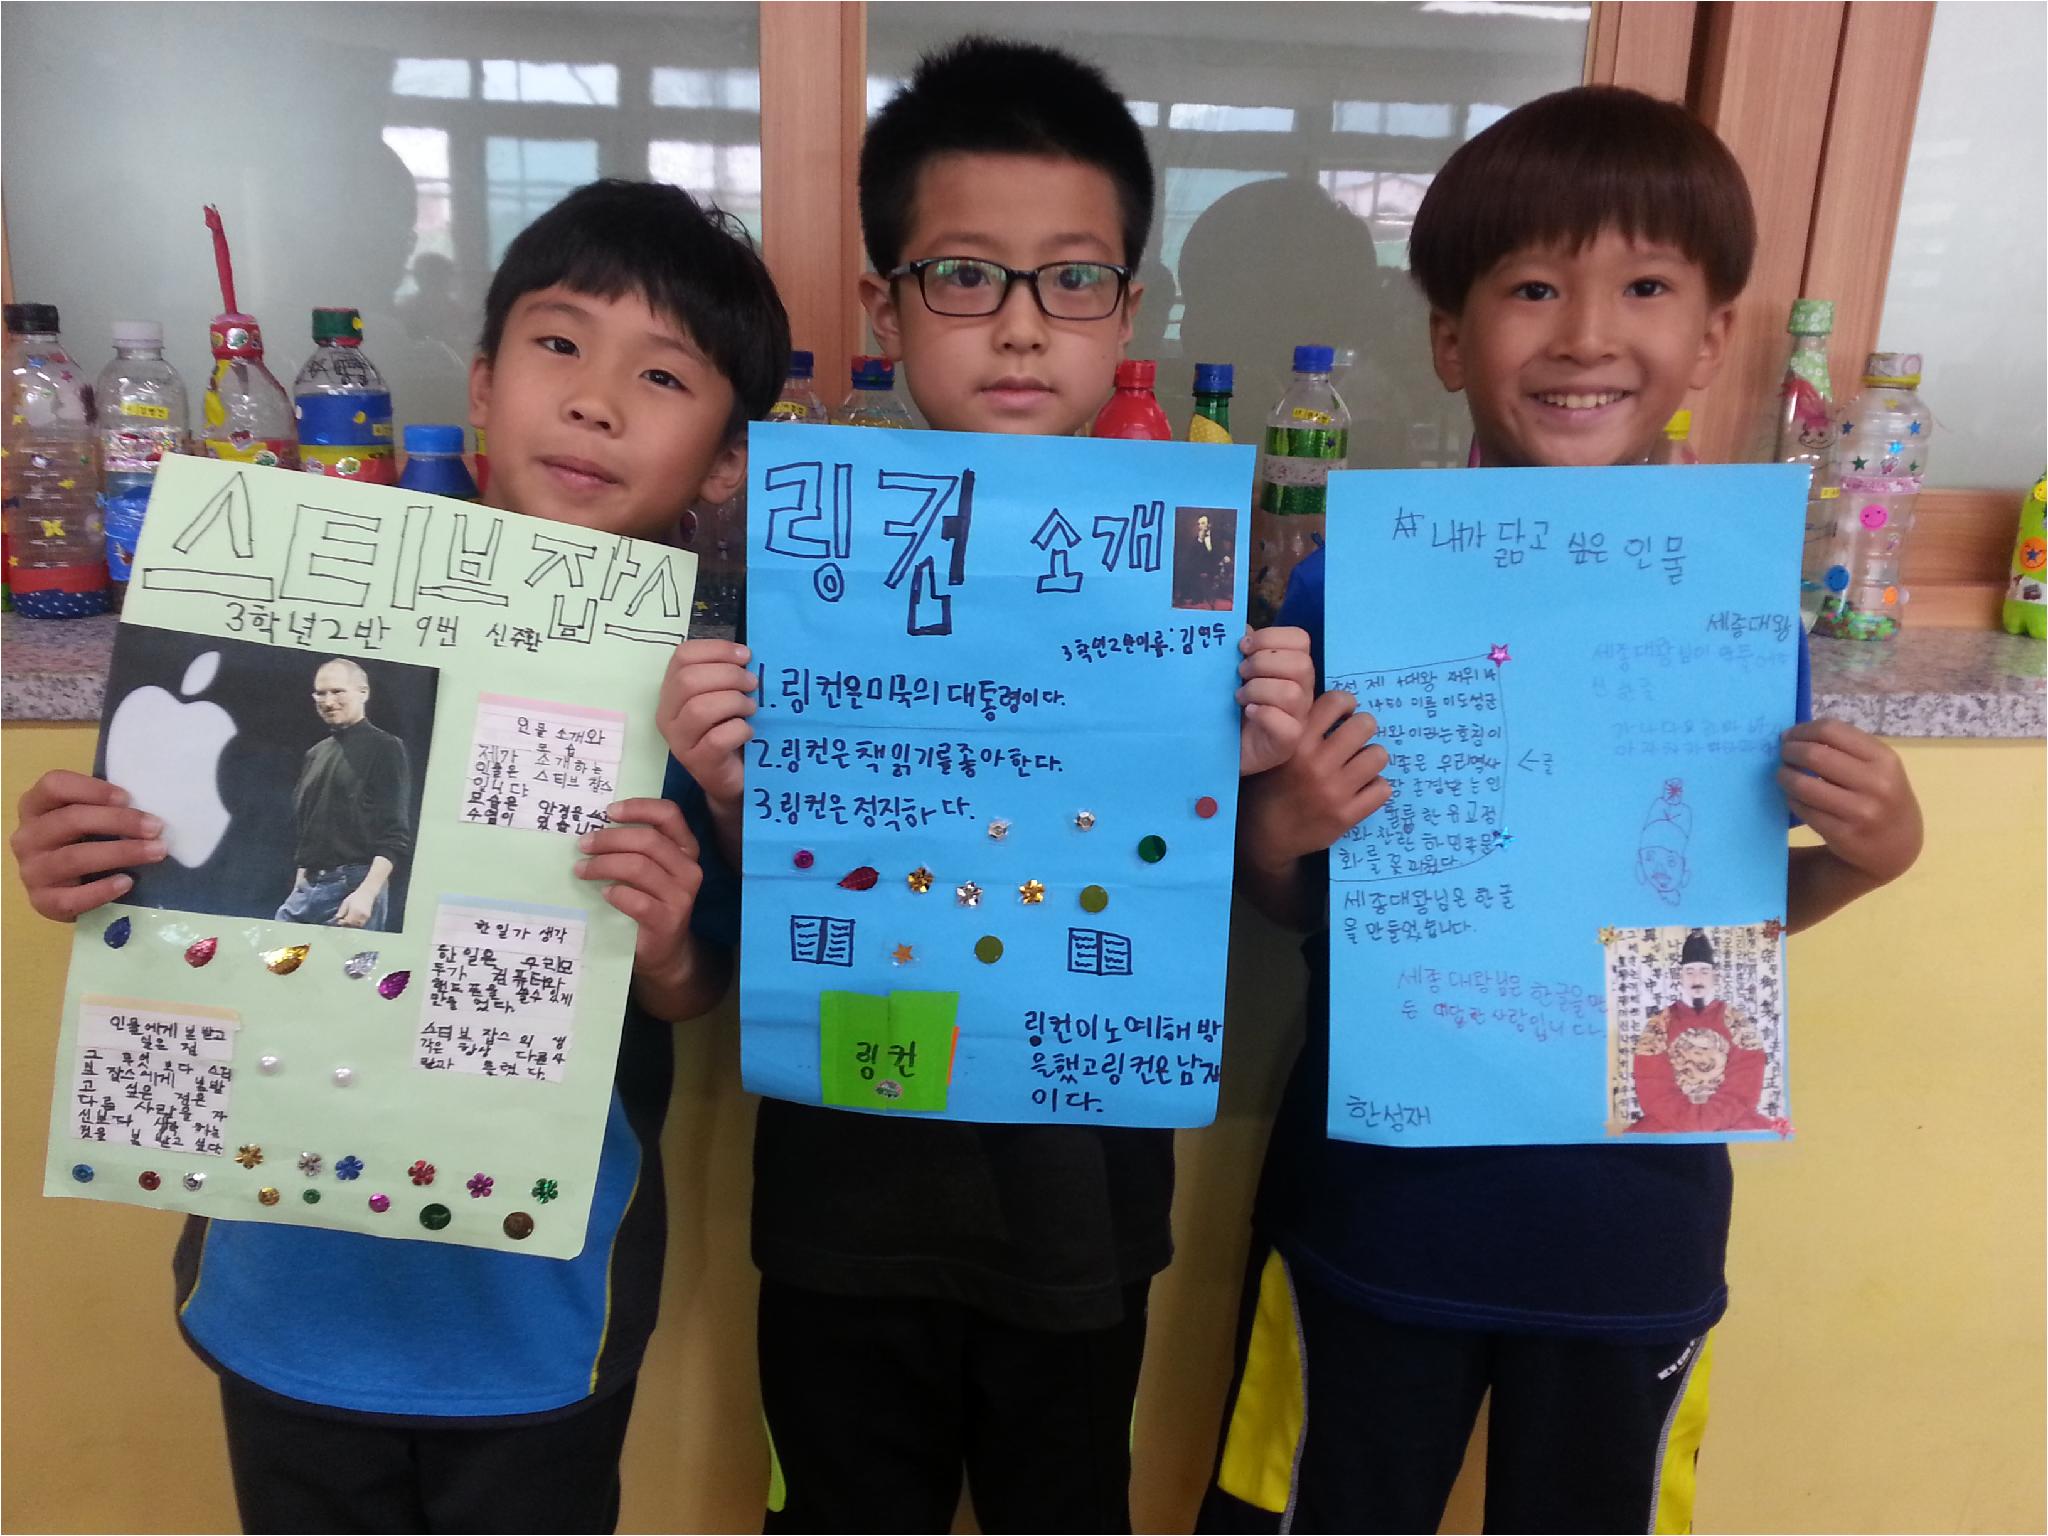 스티브잡스
3학년2반 9번 신주환
인물 소개와
모습
제가 소개하는
인물은 스티브 잡스
입니다
모습은 안경을 쓰고
수염이 있습니다
한일가 생각
한일은 우리모
두가 컴퓨터와
핸드폰을 쓸수 있게
만들었다.
스티브 잡스의 생
각은 항상 다른사
람과 틀렸다.
인물에게 본받고
싶은 점
그 무엇 보다 스티
브 잡스에게 본받
고 싶은 점은
다름 사람을 자
신보다 생각하는
것을 본 받고 싶다
링컨 소개
3학년2반이름:김연두
1.링컨은미국의대통령이다.
2.링컨은책읽기를좋아한다.
3.링컨은정직하다.
링컨
링컨이노예해방
을했고링컨은남자
이다.
내가 닮고 싶은 인물
세종대왕
세종대왕님이 만드
제 4대왕 재위 14
1450 이름 이도성군
대왕이라는호칭이
세종은 우리역사
장 존경받는인
륭한 유교정
와 찬란 하 민족문
화를 꽃 피웠다.
←글
세종대왕님은 한글
을 만들었습니다.
세종대왕님은 한글을만
든 대단한 사람입니다.
한성재